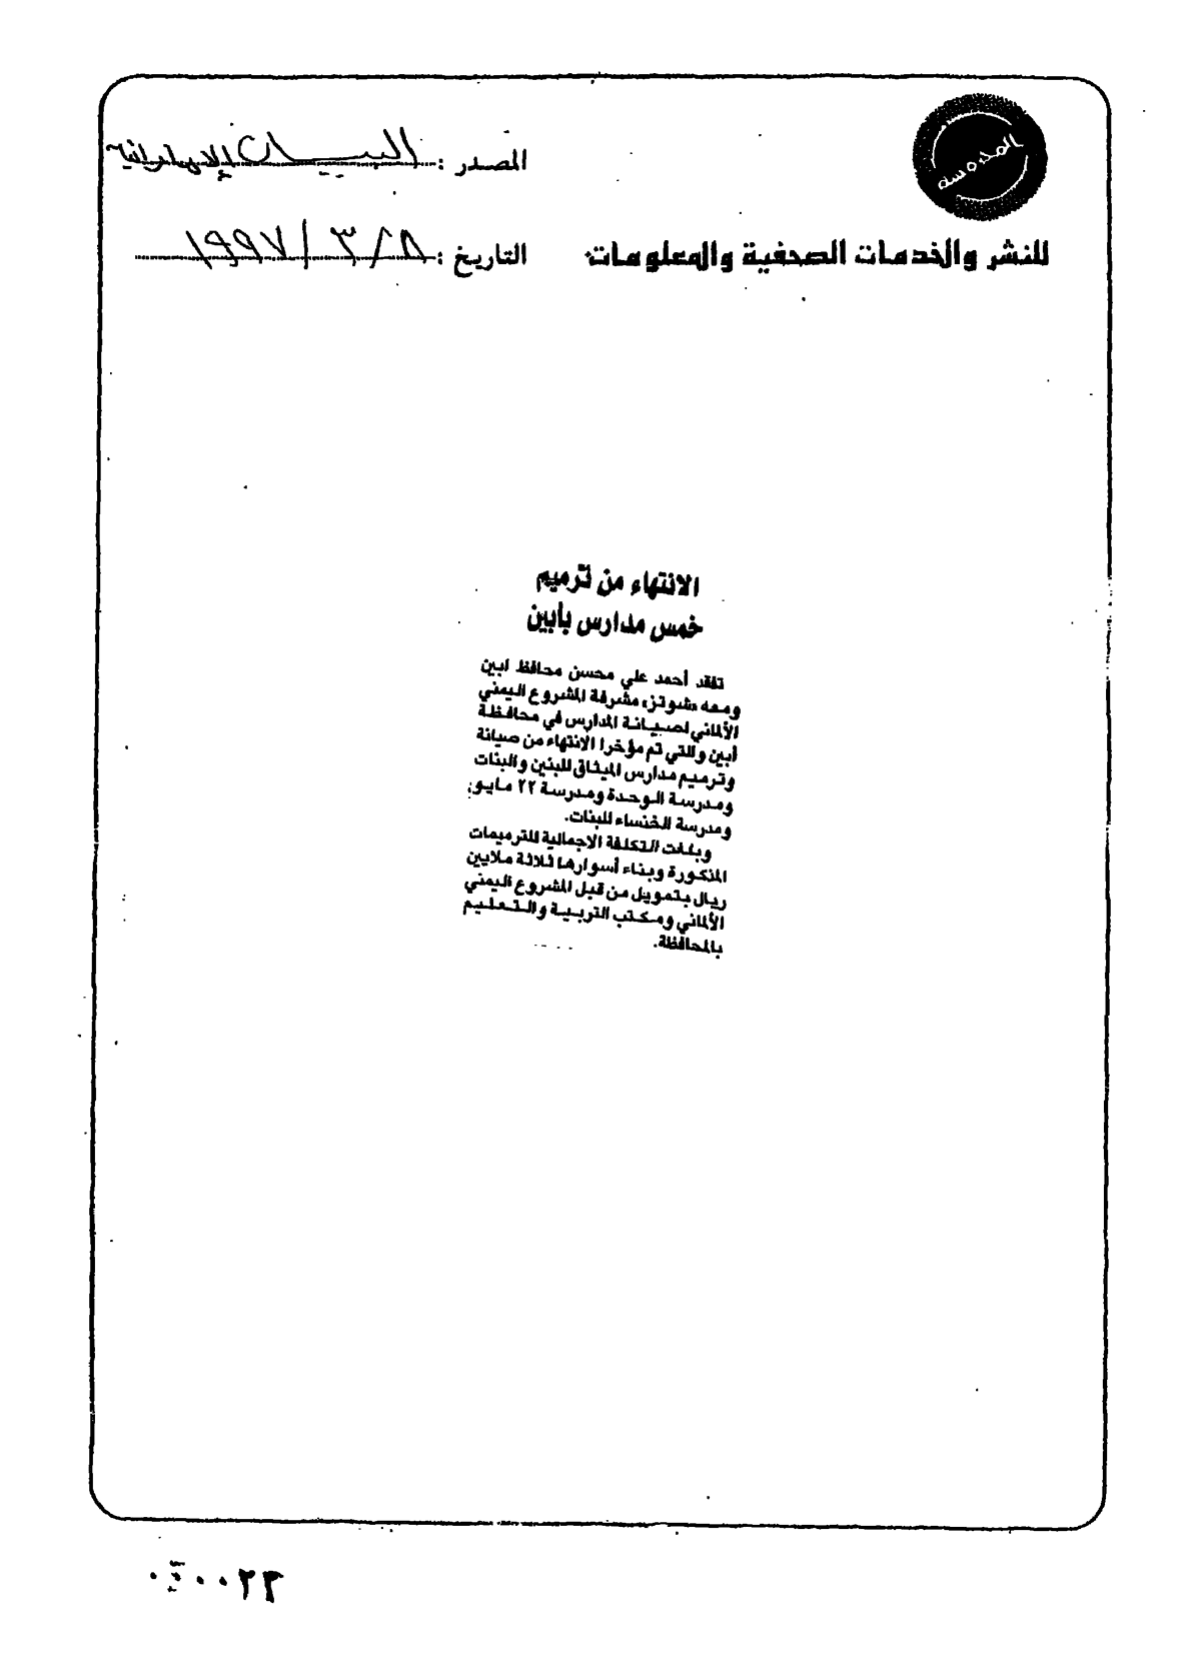 المحروسة
المصدر : البيان الإماراتية
للنشر والخدمات الصحفية والمعلومات
التاريخ : ٢٨ / ٣ / ١٩٩٧
الانتهاء من ترميم
خمس مدارس بأبين
تفقد أحمد علي محسن محافظ ابين
ومعه «شوتز» مشرفة المشروع اليمني
الألماني لصيانة المدارس في محافظة
أبين والتي تم مؤخرا الانتهاء من صيانة
وترميم مدارس الميثاق للبنين والبنات
ومدرسة الوحدة ومدرسة ٢٢ مايو
ومدرسة الخنساء للبنات.
وبلغت التكلفة الاجمالية للترميمات
المذكورة وبناء أسوارها ثلاثة ملايين
ريال بتمويل من قبل المشروع اليمني
الألماني ومكتب التربية والتعليم
بالمحافظة.